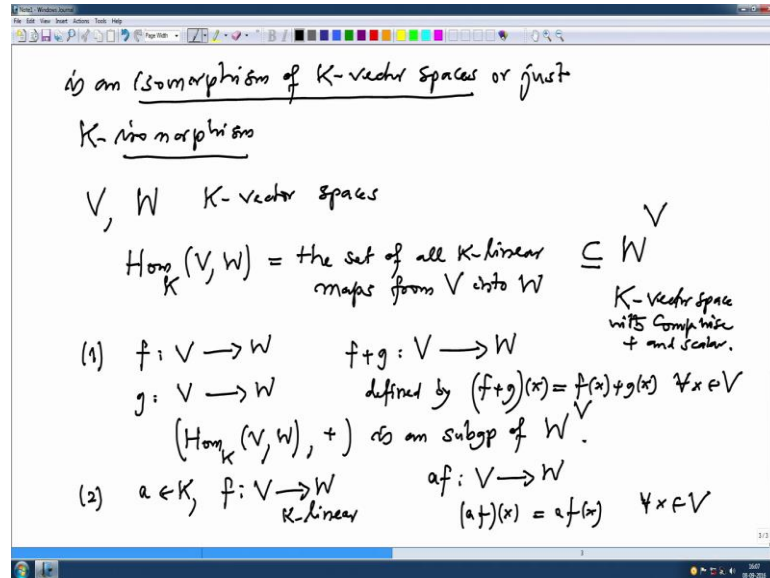 Note1 - Windows Journal
File Edit View Insert Actions Tools Help
Page Width
B I
is an isomorphism of K-vector spaces or just
K-isomorphism
V, W K-vector spaces
Hom_K (V, W) = the set of all K-linear maps from V into W ⊆ W^V
K-vector space
with Componentwise
+ and scalar.
(1) f : V → W f+g : V → W
g : V → W defined by (f+g)(x) = f(x)+g(x) ∀ x ∈ V
(Hom_K (V, W), +) is an subgp of W^V.
(2) a ∈ K, f : V → W af : V → W
K-linear (af)(x) = af(x) ∀ x ∈ V
3/3
3
16:07
08-09-2016